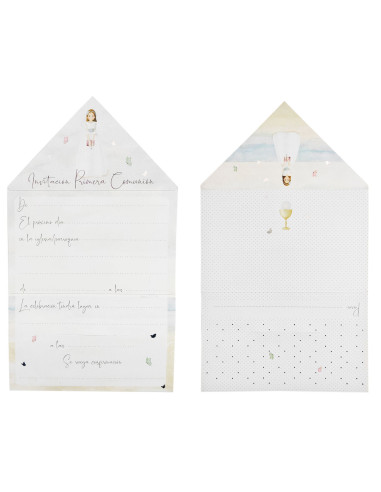 Invitación Primera Comunión
De
El próximo día
en la iglesia/parroquia
de a las
La celebración tendrá lugar en
a las
Se ruega confirmación
Para: